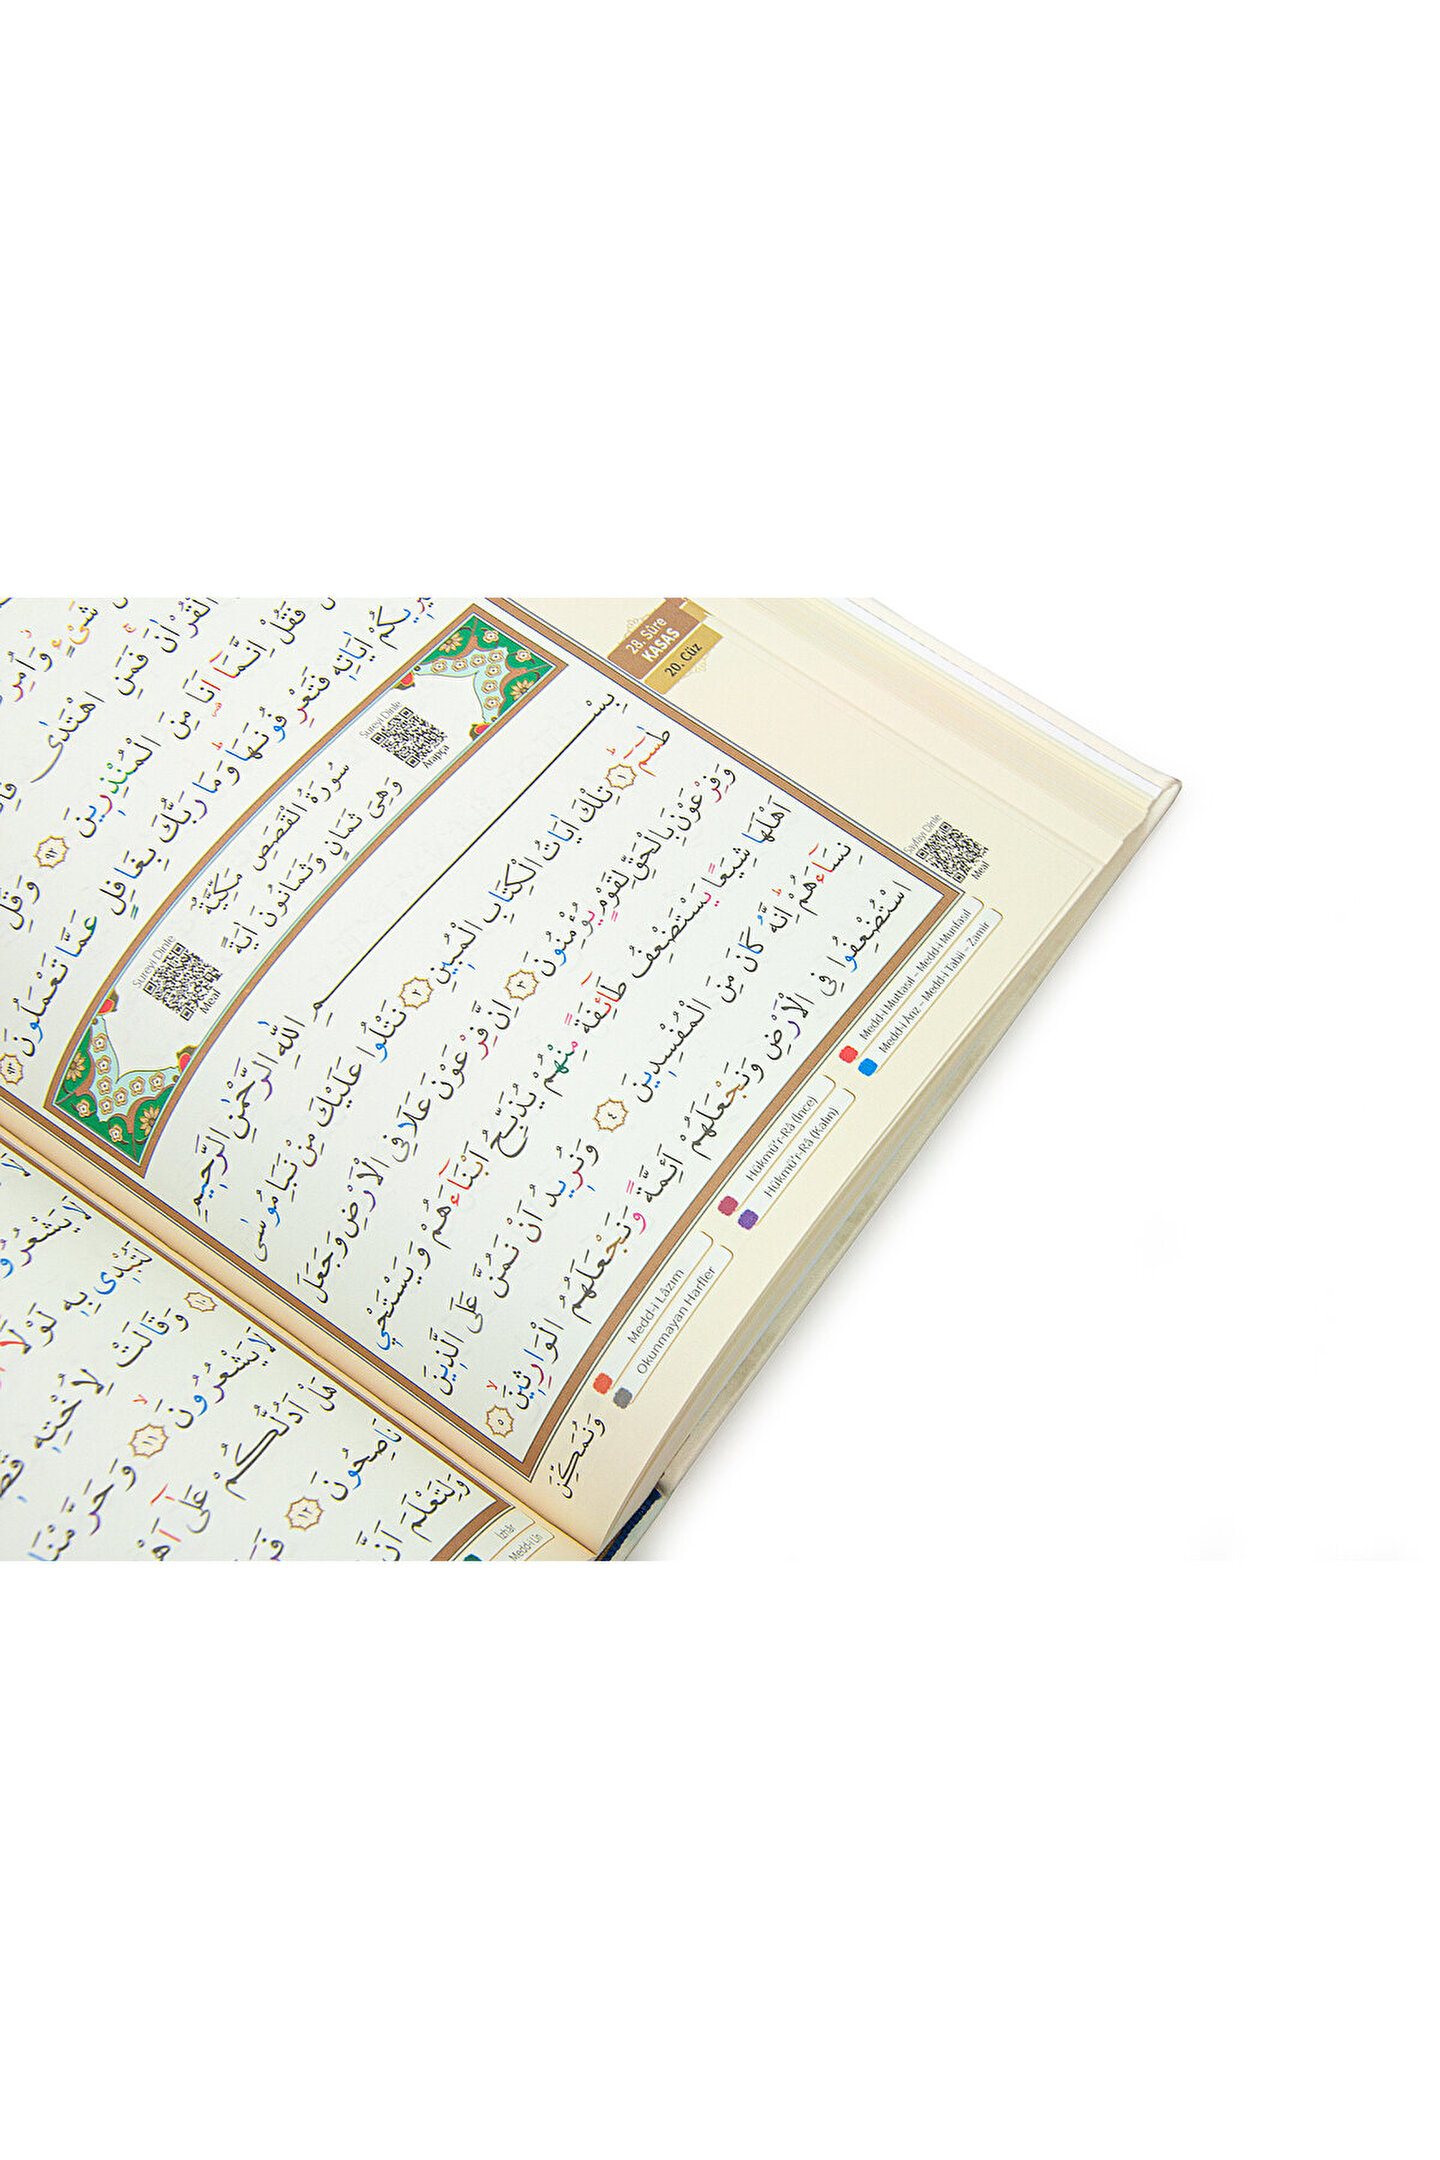 28. Sûre
KASAS
20. Cüz
شَيْءٍ وَاُمِرْ
الْقُرْاٰنَ فَمَنِ اهْتَدٰى
فَقُلْ اِنَّمَٓا اَنَا۬ مِنَ الْمُنْذِر۪ينَ ﴿٩٢﴾ وَقُلِ
اٰيَاتِه۪ فَتَعْرِفُونَهَاۜ وَمَا رَبُّكَ بِغَافِلٍ عَمَّا تَعْمَلُونَ ﴿٩٣﴾
Sureyi Dinle
Arapça
سُورَةُ الْقَصَصِ مَكِّيَّةٌ
وَهِيَ ثَمَانٍ وَثَمَانُونَ اٰيَةً
Sureyi Dinle
Meal
بِسْــــمِ اللّٰهِ الرَّحْمٰنِ الرَّح۪يمِ
طٰسٓمٓۜ ﴿١﴾ تِلْكَ اٰيَاتُ الْكِتَابِ الْمُب۪ينِ ﴿٢﴾ نَتْلُوا عَلَيْكَ مِنْ نَبَأِ مُوسٰى
وَفِرْعَوْنَ بِالْحَقِّ لِقَوْمٍ يُؤْمِنُونَ ﴿٣﴾ اِنَّ فِرْعَوْنَ عَلَا فِي الْاَرْضِ وَجَعَلَ
اَهْلَهَا شِيَعًا يَسْتَضْعِفُ طَٓائِفَةً مِنْهُمْ يُذَبِّحُ اَبْنَٓاءَهُمْ وَيَسْتَحْي۪
نِسَٓاءَهُمْۜ اِنَّهُ كَانَ مِنَ الْمُفْسِد۪ينَ ﴿٤﴾ وَنُر۪يدُ اَنْ نَمُنَّ عَلَى الَّذ۪ينَ
اسْتُضْعِفُوا فِي الْاَرْضِ وَنَجْعَلَهُمْ اَئِمَّةً وَنَجْعَلَهُمُ الْوَارِث۪ينَۙ ﴿٥﴾
وَنُمَكِّنَ
Sayfayı Dinle
Meal
Medd-i Muttasıl – Medd-i Munfasıl
Medd-i Arız – Medd-i Tabii – Zamir
Hükmü'r-Râ (İnce)
Hükmü'r-Râ (Kalın)
Medd-i Lâzım
Okunmayan Harfler
لَا يَشْعُرُو
لَتُبْد۪ي بِه۪ لَوْلَٓا
﴿١٠﴾ وَقَالَتْ لِاُخْتِه۪
لَا يَشْعُرُونَۙ ﴿١١﴾ وَحَرَّمْنَا
هَلْ اَدُلُّكُمْ عَلٰٓى
نَاصِحُونَ ﴿١٢﴾
وَلِتَعْلَمَ اَنَّ
İzhâr
Medd-i Lîn